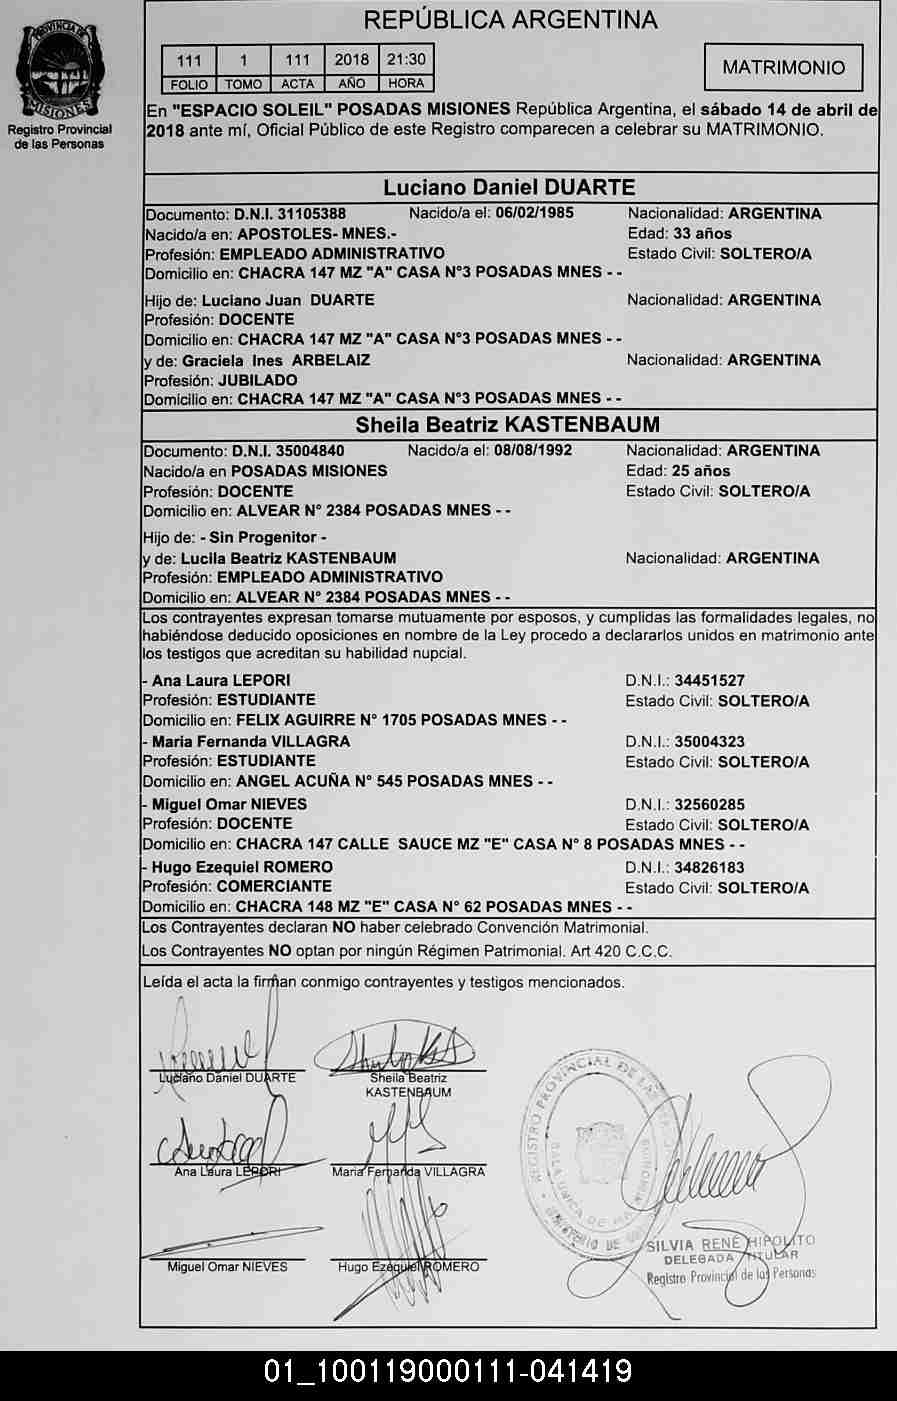 PROVINCIA DE
MISIONES
Registro Provincial
de las Personas
REPÚBLICA ARGENTINA
111 1 111 2018 21:30
FOLIO TOMO ACTA AÑO HORA
MATRIMONIO
En "ESPACIO SOLEIL" POSADAS MISIONES República Argentina, el sábado 14 de abril de
2018 ante mí, Oficial Público de este Registro comparecen a celebrar su MATRIMONIO.
Luciano Daniel DUARTE
Documento: D.N.I. 31105388 Nacido/a el: 06/02/1985 Nacionalidad: ARGENTINA
Nacido/a en: APOSTOLES- MNES.- Edad: 33 años
Profesión: EMPLEADO ADMINISTRATIVO Estado Civil: SOLTERO/A
Domicilio en: CHACRA 147 MZ "A" CASA N°3 POSADAS MNES - -
Hijo de: Luciano Juan DUARTE Nacionalidad: ARGENTINA
Profesión: DOCENTE
Domicilio en: CHACRA 147 MZ "A" CASA N°3 POSADAS MNES - -
y de: Graciela Ines ARBELAIZ Nacionalidad: ARGENTINA
Profesión: JUBILADO
Domicilio en: CHACRA 147 MZ "A" CASA N°3 POSADAS MNES - -
Sheila Beatriz KASTENBAUM
Documento: D.N.I. 35004840 Nacido/a el: 08/08/1992 Nacionalidad: ARGENTINA
Nacido/a en POSADAS MISIONES Edad: 25 años
Profesión: DOCENTE Estado Civil: SOLTERO/A
Domicilio en: ALVEAR N° 2384 POSADAS MNES - -
Hijo de: - Sin Progenitor -
y de: Lucila Beatriz KASTENBAUM Nacionalidad: ARGENTINA
Profesión: EMPLEADO ADMINISTRATIVO
Domicilio en: ALVEAR N° 2384 POSADAS MNES - -
Los contrayentes expresan tomarse mutuamente por esposos, y cumplidas las formalidades legales, no
habiéndose deducido oposiciones en nombre de la Ley procedo a declararlos unidos en matrimonio ante
los testigos que acreditan su habilidad nupcial.
- Ana Laura LEPORI D.N.I.: 34451527
Profesión: ESTUDIANTE Estado Civil: SOLTERO/A
Domicilio en: FELIX AGUIRRE N° 1705 POSADAS MNES - -
- Maria Fernanda VILLAGRA D.N.I.: 35004323
Profesión: ESTUDIANTE Estado Civil: SOLTERO/A
Domicilio en: ANGEL ACUÑA N° 545 POSADAS MNES - -
- Miguel Omar NIEVES D.N.I.: 32560285
Profesión: DOCENTE Estado Civil: SOLTERO/A
Domicilio en: CHACRA 147 CALLE SAUCE MZ "E" CASA N° 8 POSADAS MNES - -
- Hugo Ezequiel ROMERO D.N.I.: 34826183
Profesión: COMERCIANTE Estado Civil: SOLTERO/A
Domicilio en: CHACRA 148 MZ "E" CASA N° 62 POSADAS MNES - -
Los Contrayentes declaran NO haber celebrado Convención Matrimonial.
Los Contrayentes NO optan por ningún Régimen Patrimonial. Art 420 C.C.C.
Leída el acta la firman conmigo contrayentes y testigos mencionados.
Luciano Daniel DUARTE Sheila Beatriz
KASTENBAUM
REGISTRO PROVINCIAL DE LAS
Ana Laura LEPORI Maria Fernanda VILLAGRA
MINISTERIO DE
SILVIA RENÉ HIPOLITO
DELEGADA TITULAR
Registro Provincial de las Personas
Miguel Omar NIEVES Hugo Ezequiel ROMERO
01_100119000111-041419